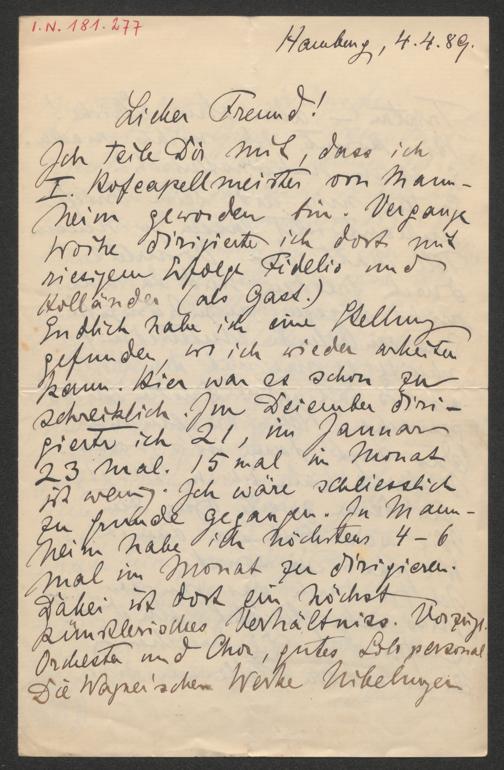 I.N. 181.277
Hamburg, 4.4.89.
Lieber Freund!
Ich teile Dir mit, dass ich
I. Hofcapellmeister von Mann-
heim geworden bin. Vergange
Woche dirigierte ich dort mit
riesigem Erfolge Fidelio und
Holländer (als Gast.)
Endlich habe ich eine Stellung
gefunden, wo ich wieder arbeiten
kann. Hier war es schon zu
schrecklich. Im Deiember diri-
gierte ich 21, im Januar
23 mal. 15 mal im Monat
ist wenig. Ich wäre schliesslich
zu grunde gegangen. In Mann-
heim habe ich höchstens 4-6
mal im Monat zu dirigieren.
Dabei ist dort ein höchst
künstlerisches Verhältniss. Vorzügl.
Orchester und Chor, gutes Solopersonal
Die Wagner'schen Werke Nibelungen